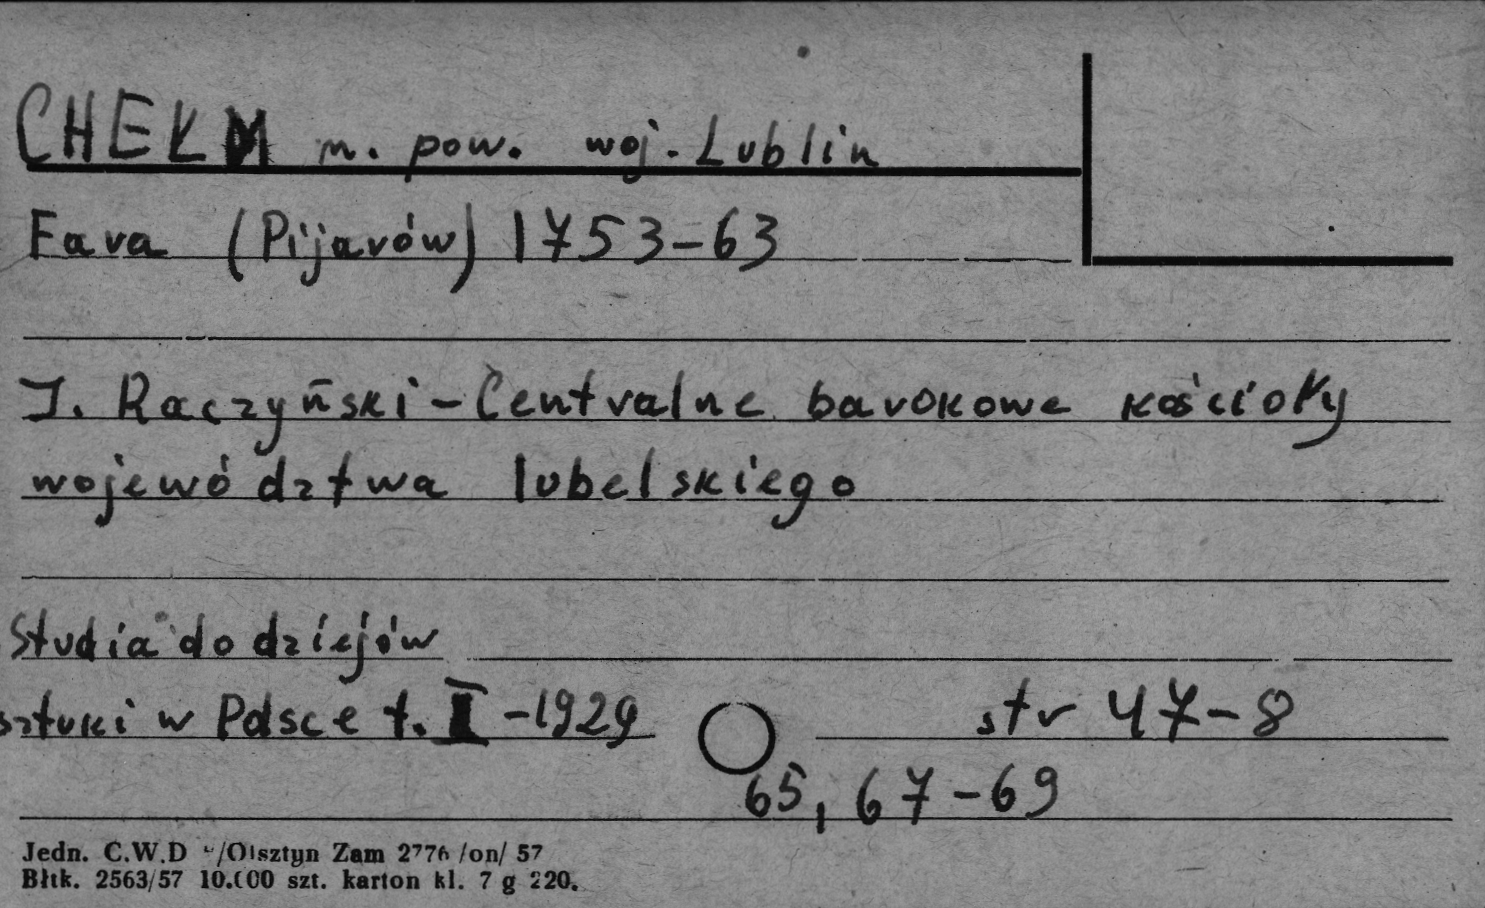 CHEŁM m. pow. woj. Lublin
Fara (Pijarów) 1753-63
J. Raczyński - Centralne barokowe kościoły
województwa lubelskiego
Studia do dziejów
sztuki w Polsce t. I - 1929 str 47-8
65, 67-69
Jedn. C.W.D /Olsztyn Zam 2776 /on/ 57
Błtk. 2563/57 10.000 szt. karton kl. 7 g 220.